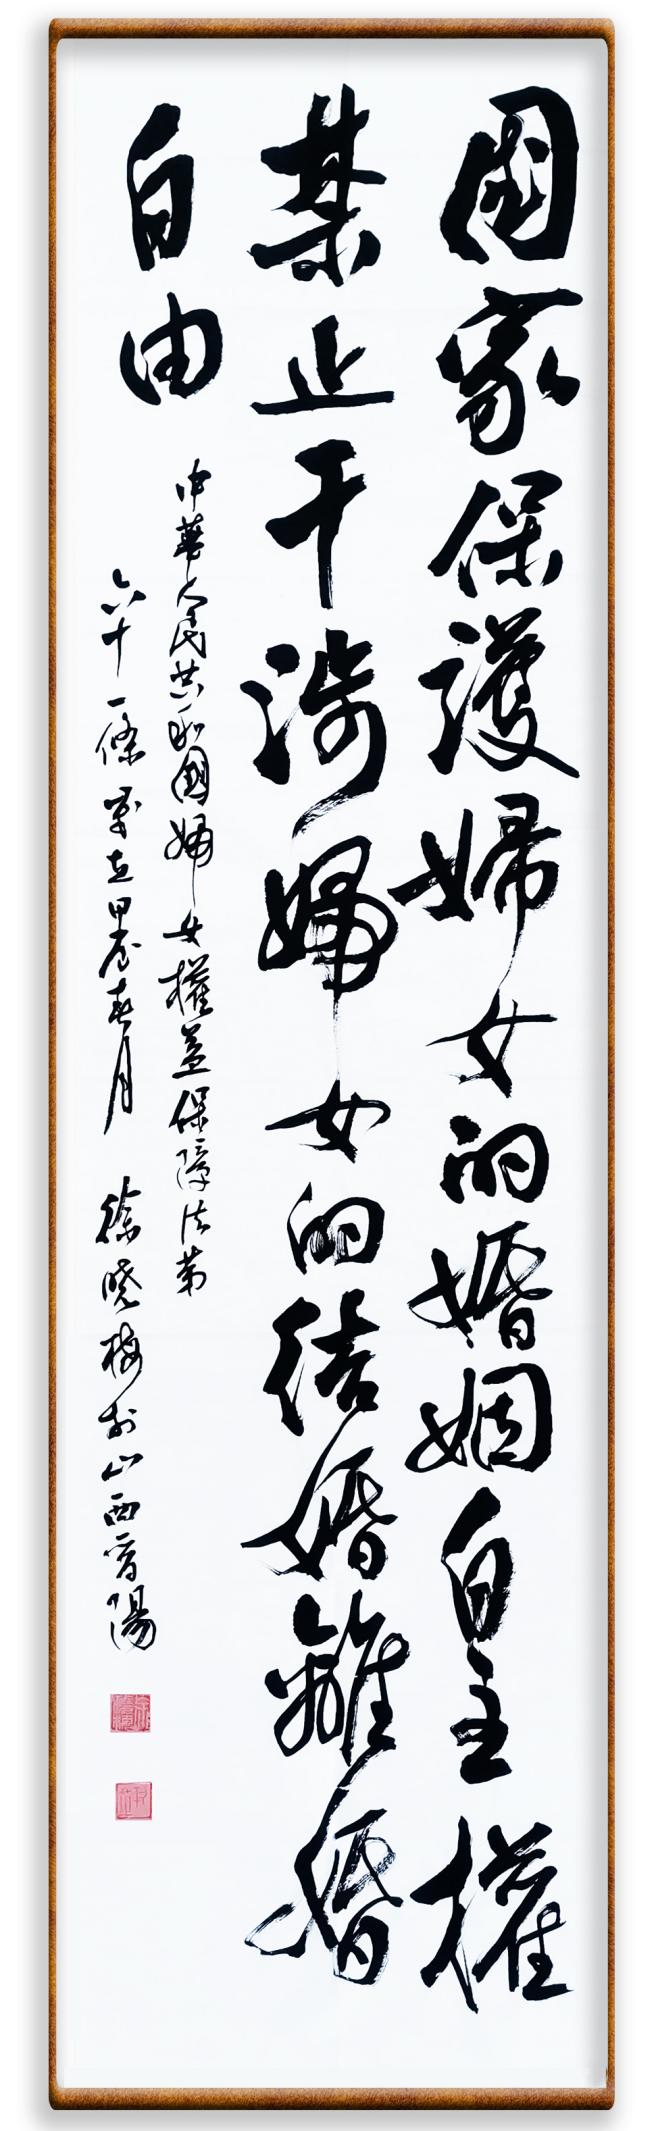 國家保護婦女的婚姻自主權
禁止干涉婦女的結婚離婚
自由
中華人民共和國婦女權益保障法第
六十一條 歲在甲辰春月 徐晓梅於山西晉陽